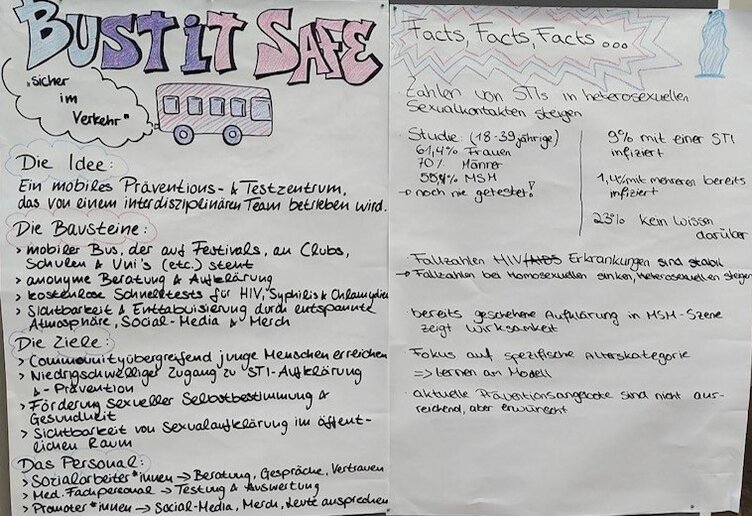 BUST IT SAFE
"sicher
im
Verkehr"
Die Idee:
Ein mobiles Präventions- & Testzentrum,
das von einem interdisziplinären Team betrieben wird.
Die Bausteine:
> mobiler Bus, der auf Festivals, an Clubs,
Schulen & Uni's (etc.) steht
> anonyme Beratung & Aufklärung
> kostenlose Schnelltests für HIV, Syphilis & Chlamydien
> Sichtbarkeit & Enttabuisierung durch entspannte
Atmosphäre, Social-Media & Merch
Die Ziele:
> Communityübergreifend junge Menschen erreichen
> Niedrigschwelliger Zugang zu STI-Aufklärung
& -Prävention
> Förderung sexueller Selbstbestimmung &
Gesundheit
> Sichtbarkeit von Sexualaufklärung im öffent-
lichen Raum
Das Personal:
> Sozialarbeiter*innen → Beratung, Gespräche, Vertrauen
> Med. Fachpersonal → Testung & Auswertung
> Promoter*innen → Social-Media, Merch, Leute ansprechen
Facts, Facts, Facts ...
Zahlen von STIs in heterosexuellen
Sexualkontakten steigen
Studie: (18-39jährige)
61,4% Frauen
70% Männer
MSM
→ noch nie getestet!
9% mit einer STI
infiziert
1,4% mit mehreren bereits
infiziert
23% kein Wissen
darüber
Fallzahlen HIV/AIDS Erkrankungen sind stabil
→ Fallzahlen bei Homosexuellen sinken, Heterosexuellen steigen
bereits geschehene Aufklärung in MSM-Szene
zeigt Wirksamkeit
Fokus auf spezifische Alterskategorie
=> Lernen am Modell
· aktuelle Präventionsangebote sind nicht aus-
reichend, aber erwünscht